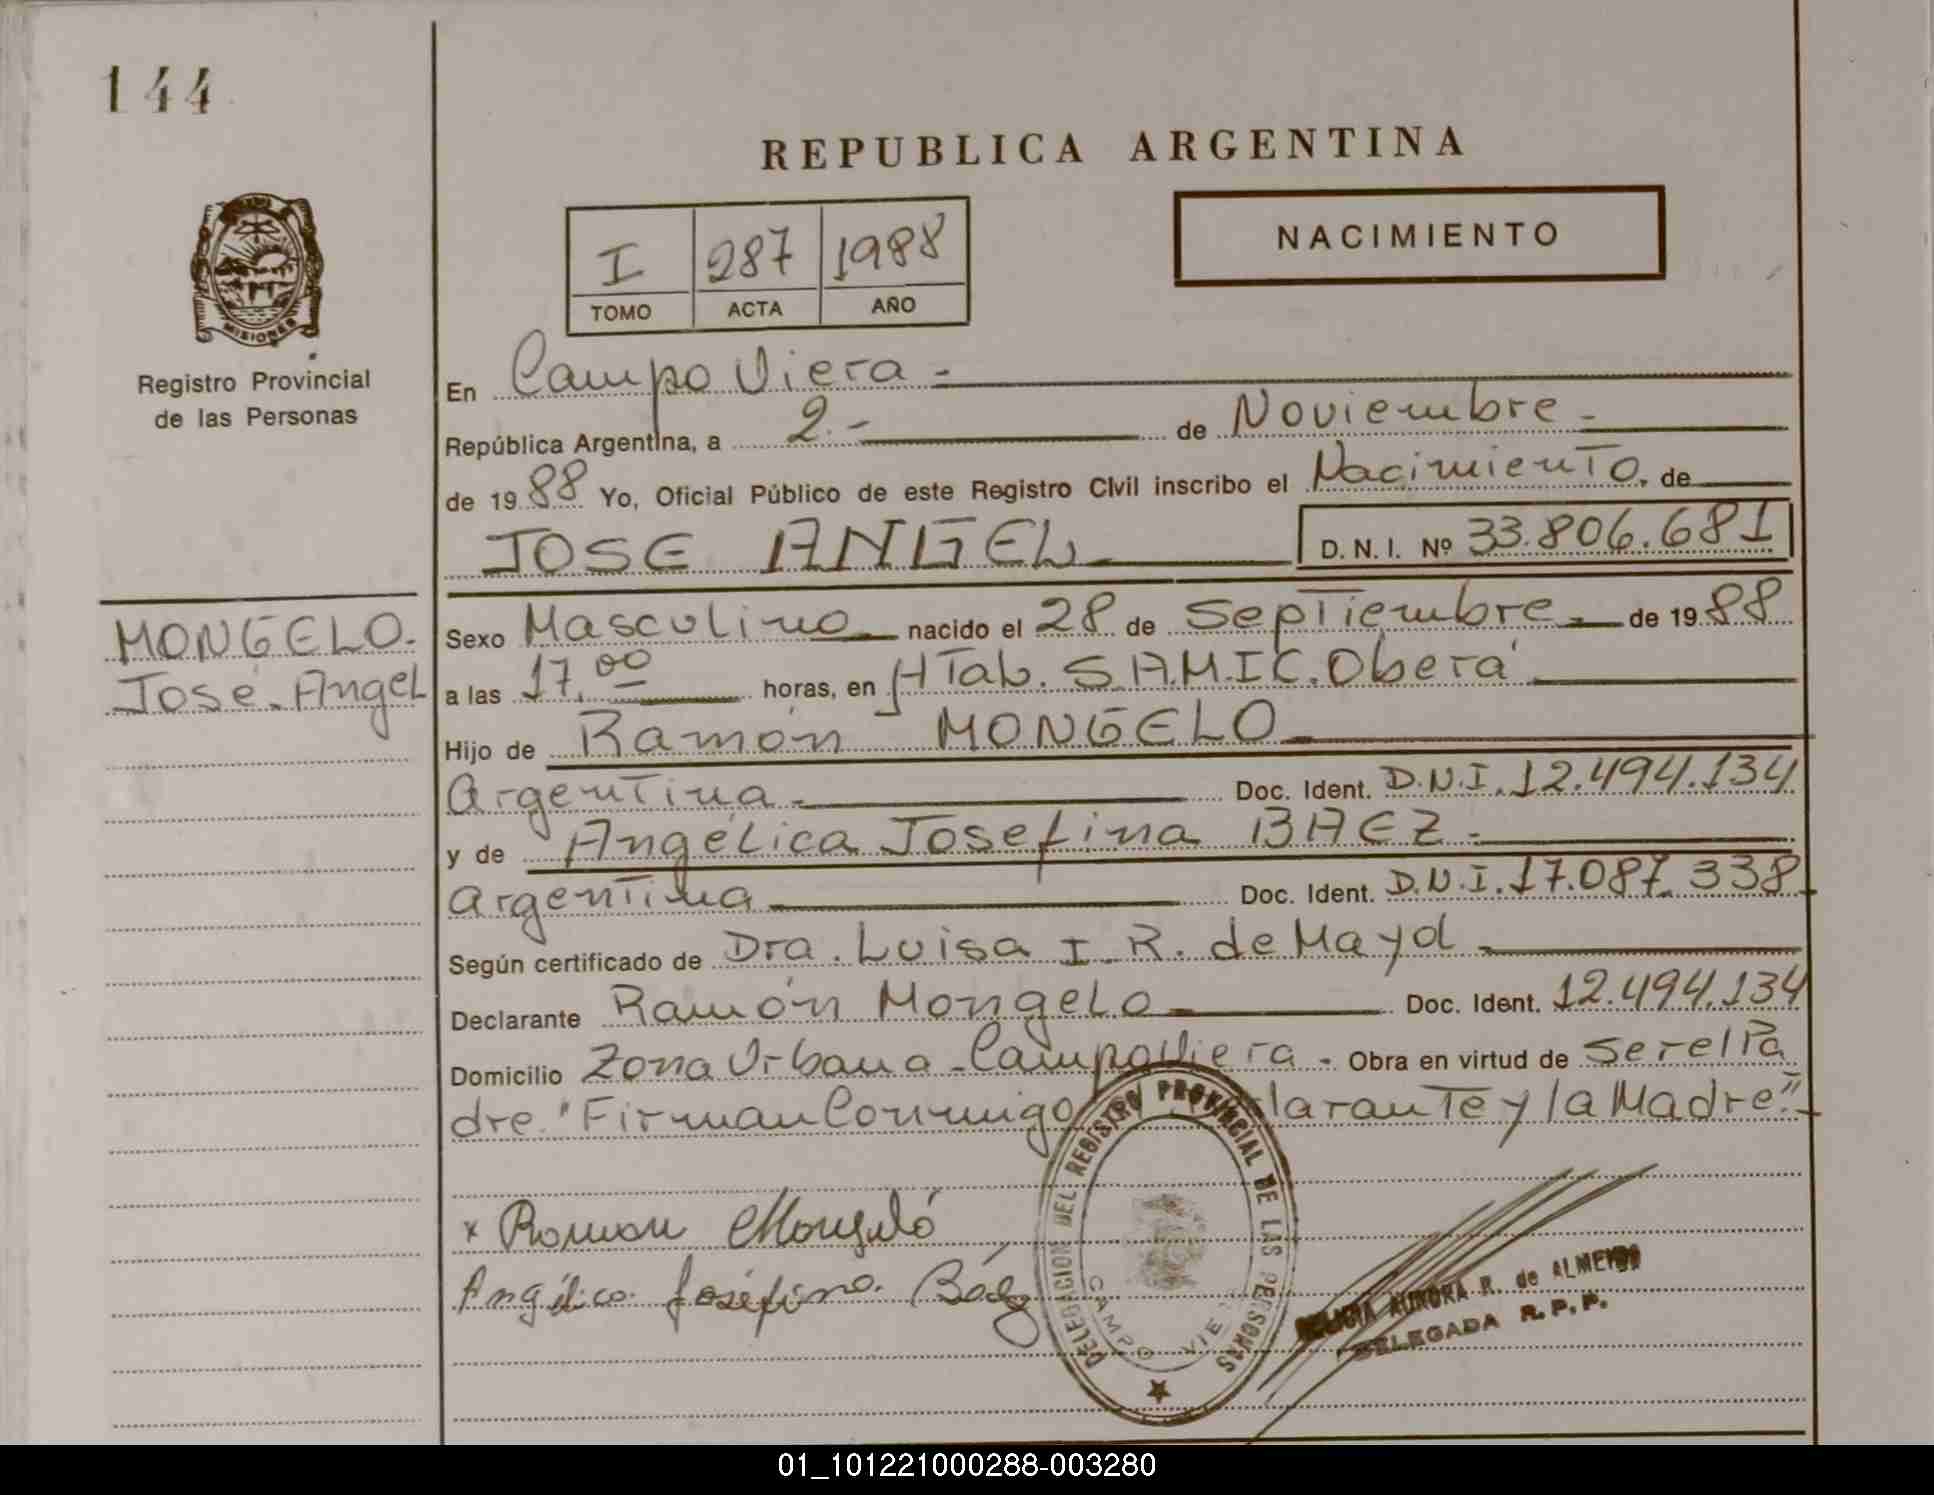 144
REPUBLICA ARGENTINA
NACIMIENTO
I 287 1988
TOMO ACTA AÑO
MISIONES
Registro Provincial
de las Personas
En Campo Viera -
República Argentina, a 2.- de Noviembre -
de 1988 Yo, Oficial Público de este Registro Civil inscribo el Nacimiento. de
JOSE ANGEL D. N. I. Nº 33.806.681
MONGELO.
José Angel
Sexo Masculino nacido el 28 de Septiembre - de 1988
a las 17,00 horas, en HTab. S.A.M.I.C. Oberá
Hijo de Ramón MONGELO
Argentina - Doc. Ident. D.N.I. 12.494.134
y de Angélica Josefina BAEZ -
Argentina Doc. Ident. D.N.I. 17.087.338
Según certificado de Dra. Luisa I. R. de Mayol
Declarante Ramón Mongelo Doc. Ident. 12.494.134
Domicilio Zona Urbana - Campo Viera - Obra en virtud de ser el Pa
dre. "Firman Conmigo larante y la Madre."
x Ramon Mongeló
Angélica Josefina Báez
DELEGACION DEL REGISTRO PROVINCIAL DE LAS PERSONAS
CAMPO VIE
AURORA R. de ALMEIDA
DELEGADA R. P. P.
01_101221000288-003280